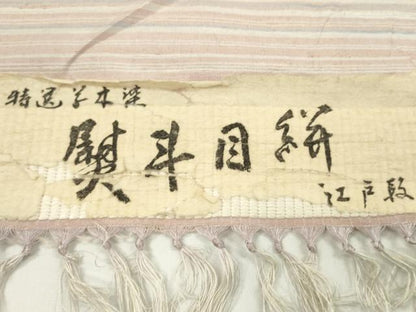 特選草木染
熨斗目絣
江戸段